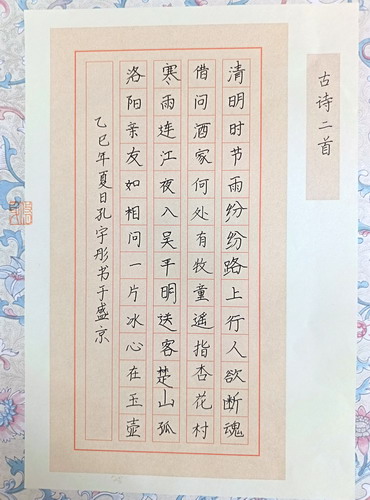 古诗二首
清明时节雨纷纷路上行人欲断魂
借问酒家何处有牧童遥指杏花村
寒雨连江夜入吴平明送客楚山孤
洛阳亲友如相问一片冰心在玉壶
乙巳年夏日孔宇彤书于盛京